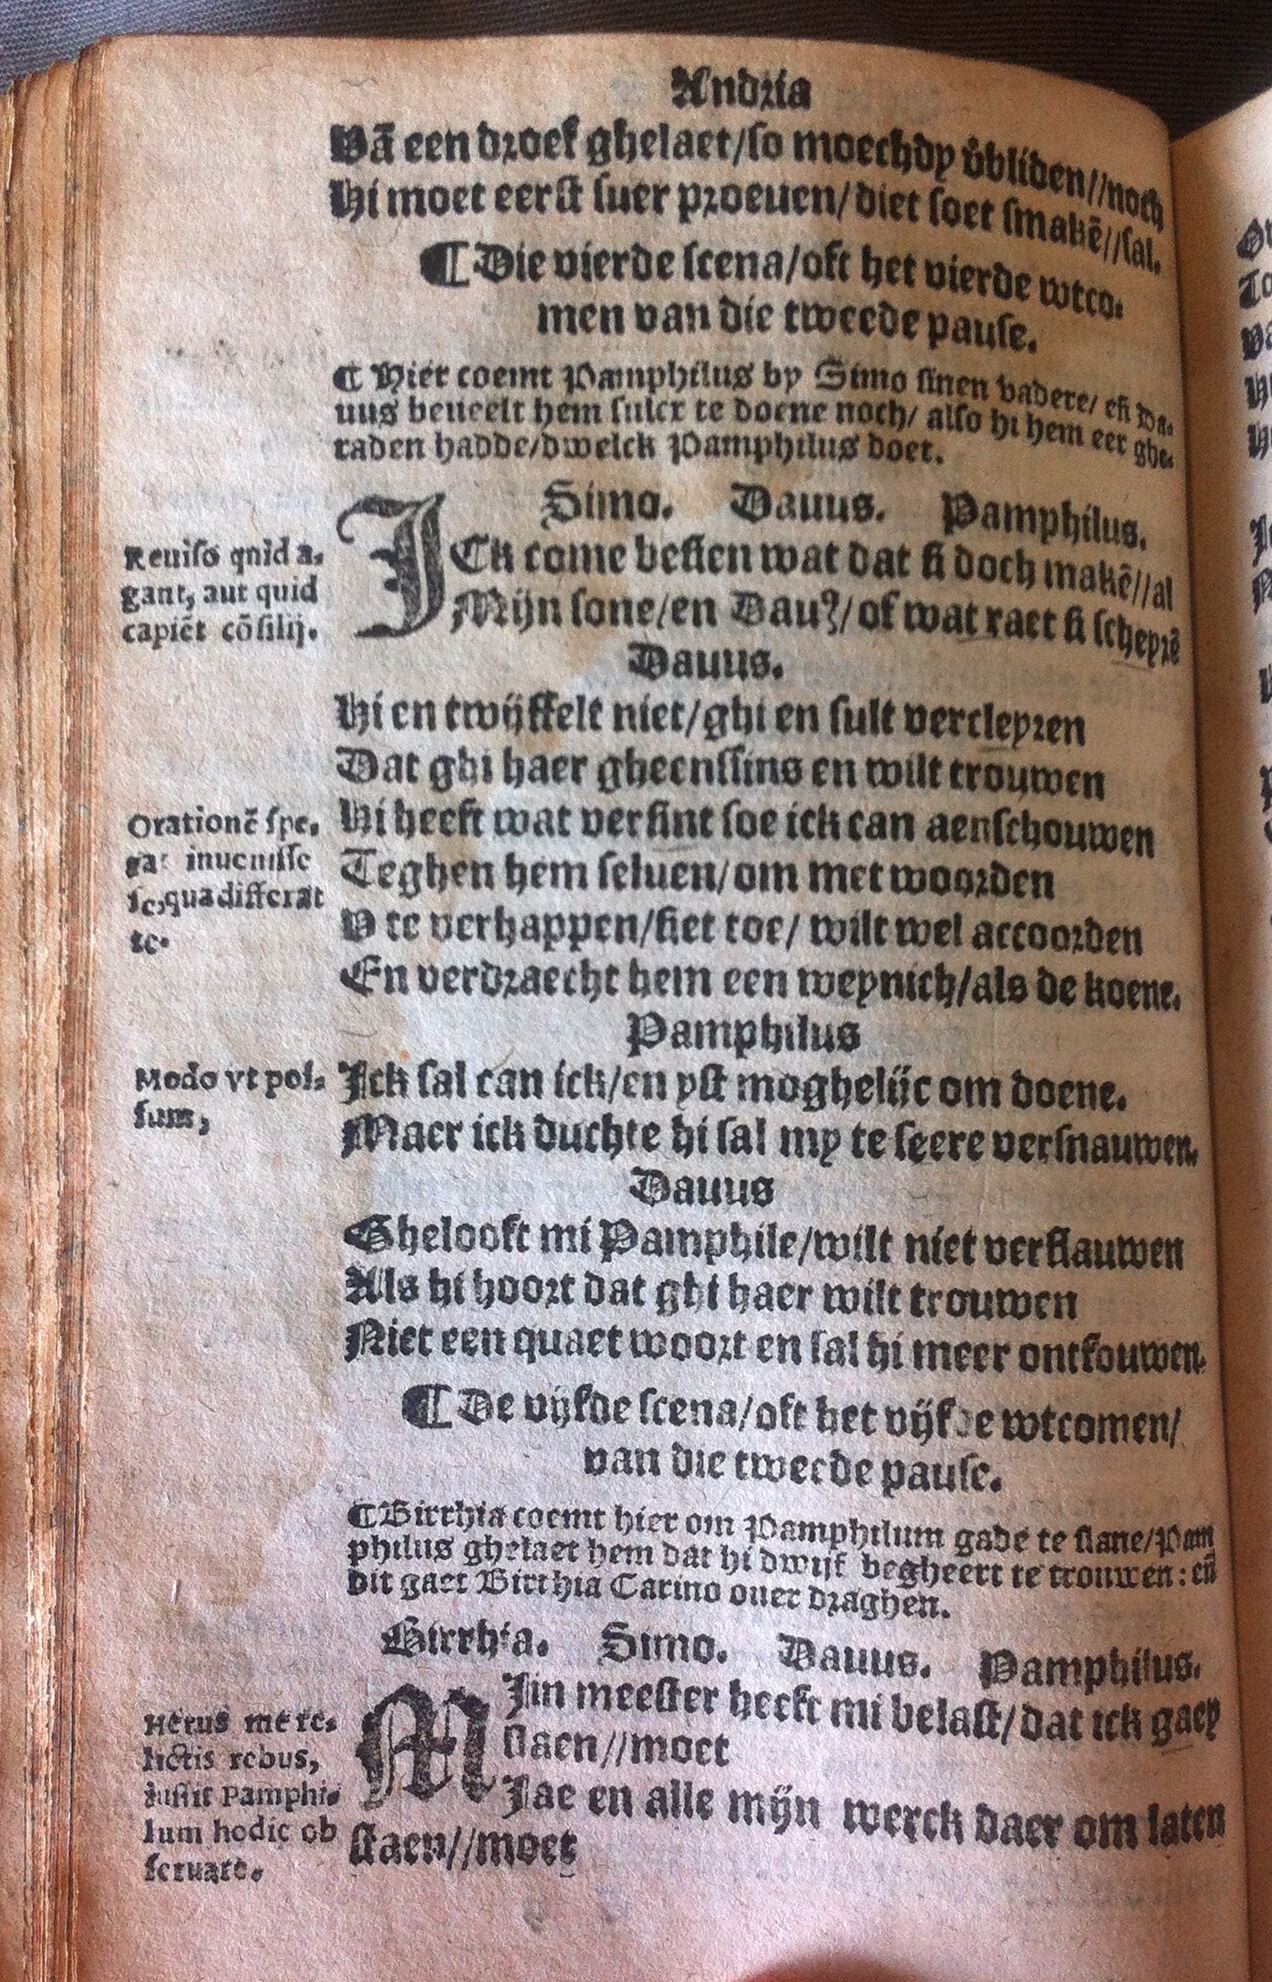 Andria
Vā een droef ghelaet/so moechdy v̄bliden//noch
Hi moet eerst suer proeuen/diet soet smakē//sal.
¶ Die vierde scena/oft het vierde wtco-
men van die tweede pause.
¶ Hier coemt Pamphilus by Simo sinen vadere/ eñ Da-
uus beueelt hem sulcx te doene noch/ also hi hem eer ghe-
raden hadde/dwelck Pamphilus doet.
Simo. Dauus. Pamphilus.
Reuiso quid a-
gant, aut quid
capiēt cōsilij.
ICk come besien wat dat si doch makē//al
Mijn sone/en Dauꝰ/of wat raet si scheprē
Dauus.
Hi en twijffelt niet/ghi en sult vercleyren
Dat ghi haer gheenssins en wilt trouwen
Orationē spe-
rat inuenisse
se,qua differat
te.
Hi heeft wat versint soe ick can aenschouwen
Teghen hem seluen/om met woorden
V te verhappen/siet toe/ wilt wel accoorden
En verdraecht hem een weynich/als de koene.
Pamphilus
Modo vt pos-
sum,
Ick sal can ick/en yst moghelijc om doene.
Maer ick duchte hi sal my te seere versnauwen.
Dauus
Ghelooft mi Pamphile/wilt niet verflauwen
Als hi hoort dat ghi haer wilt trouwen
Niet een quaet woort en sal hi meer ontfouwen.
¶ De vijfde scena/oft het vijfde wtcomen/
van die tweede pause.
¶ Birrhia coemt hier om Pamphilum gade te slane/Pam
philus ghelaet hem dat hi dwijf begheert te trouwen: eñ
dit gaet Birrhia Carino ouer draghen.
Birrhia. Simo. Dauus. Pamphilus.
Herus me re-
lictis rebus,
iussit Pamphi-
lum hodie ob
seruare.
MJin meester heeft mi belast/dat ick gaey
slaen//moet
Jae en alle mijn werck daer om laten
staen//moet